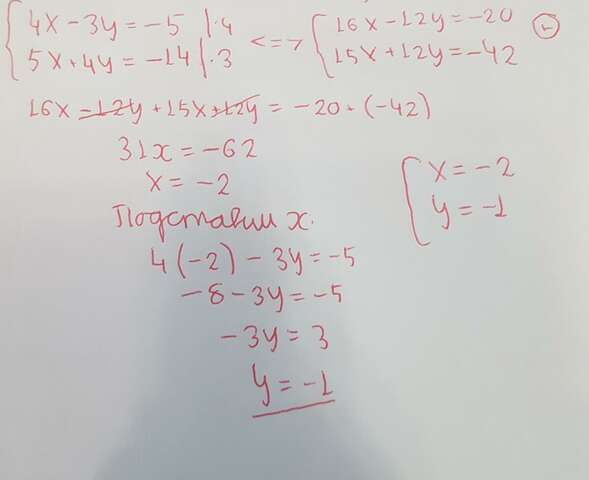 4x - 3y = -5 | ·4
5x + 4y = -14 | ·3
<=>
16x - 12y = -20
15x + 12y = -42
16x - 12y + 15x + 12y = -20 + (-42)
31x = -62
x = -2
Подставим x.
4(-2) - 3y = -5
-8 - 3y = -5
-3y = 3
y = -1
x = -2
y = -1